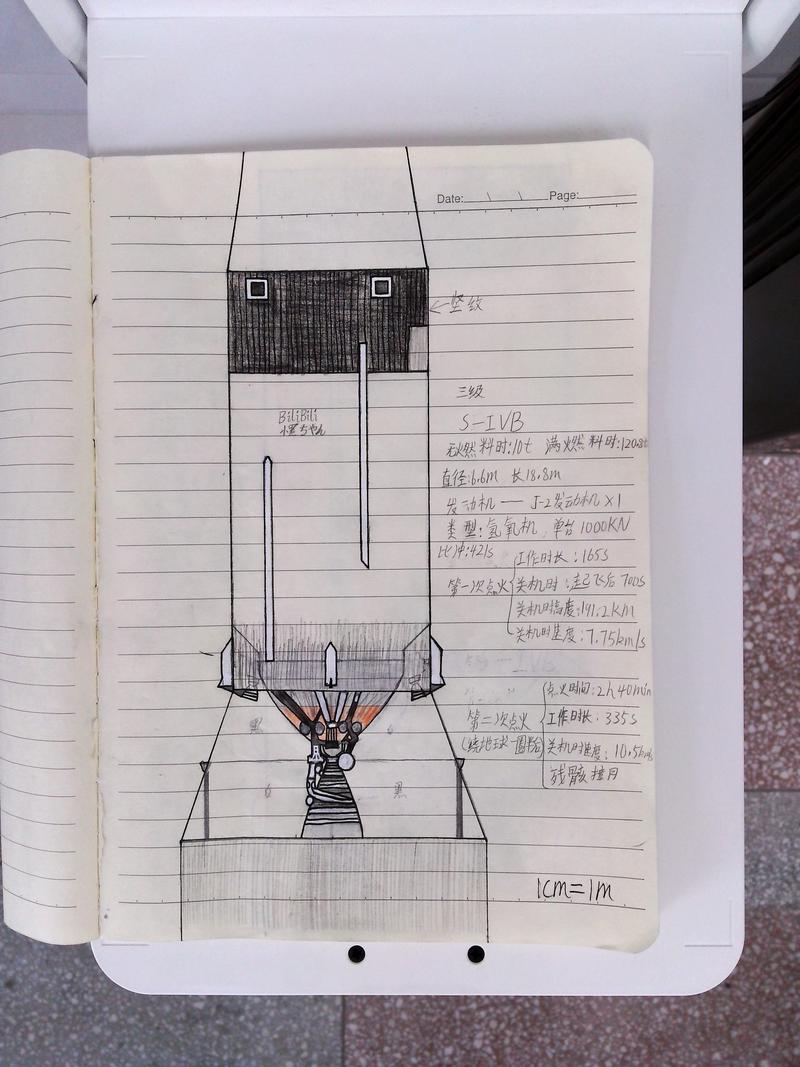 Date: \ \ Page:
←竖纹
三级
BiliBili
ちゃん
S-IVB
无燃料时:10t 满燃料时:120.8t
直径:6.6m 长18.8m
发动机 — J-2发动机 ×1
类型:氢氧机 单台1000KN
比冲:421s
第一次点火
工作时长:165s
关机时:起飞后700s
关机时高度:191.2km
关机时速度:7.75km/s
第二次点火
点火时间:2h40min
工作时长:335s
关机时速度:10.5km/s
残骸撞月
黑
黑
1cm=1m